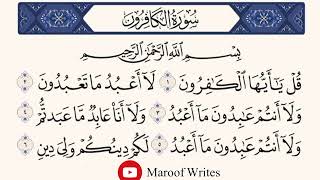 سُورَةُ الْكَافِرُونَ
بِسْمِ اللَّهِ الرَّحْمَٰنِ الرَّحِيمِ
قُلْ يَا أَيُّهَا الْكَافِرُونَ ١ لَا أَعْبُدُ مَا تَعْبُدُونَ ٢
وَلَا أَنتُمْ عَابِدُونَ مَا أَعْبُدُ ٣ وَلَا أَنَا عَابِدٌ مَّا عَبَدتُّمْ ٤
وَلَا أَنتُمْ عَابِدُونَ مَا أَعْبُدُ ٥ لَكُمْ دِينُكُمْ وَلِيَ دِينِ ٦
Maroof Writes